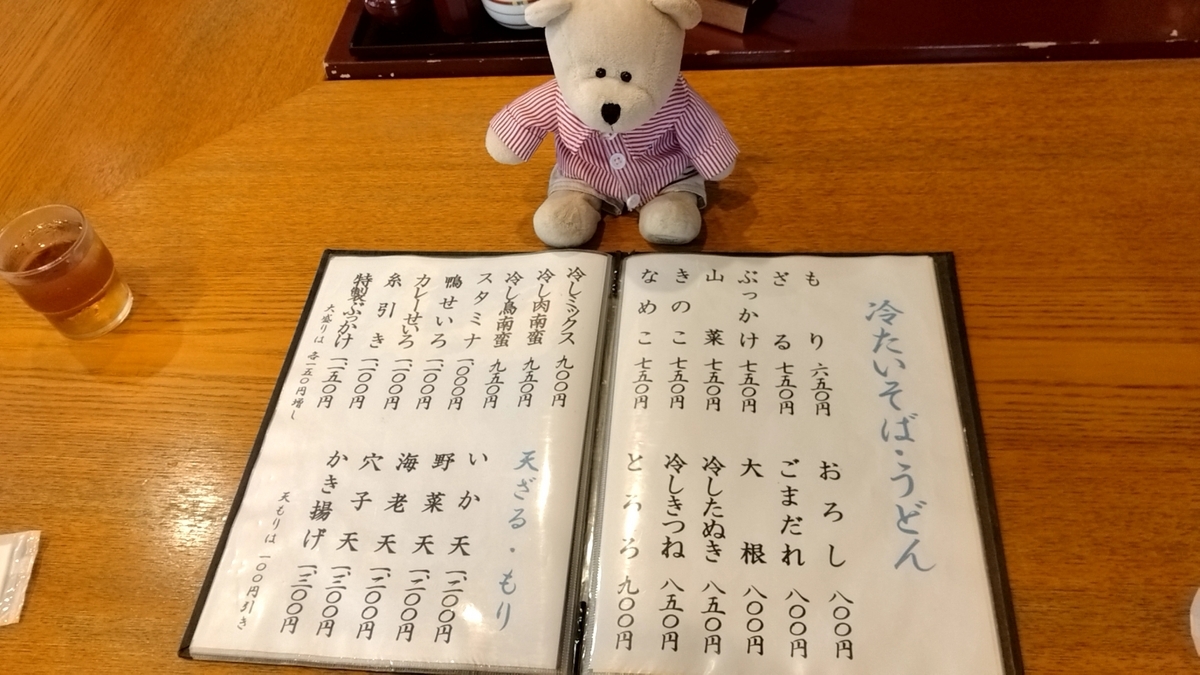 冷たいそば・うどん
もり 六五〇円
ざる 七五〇円
ぶっかけ 七五〇円
山菜 七五〇円
きのこ 七五〇円
なめこ 七五〇円
おろし 八〇〇円
ごまだれ 八〇〇円
大根 八〇〇円
冷したぬき 八五〇円
冷しきつね 八五〇円
とろろ 九〇〇円
冷しミックス 九〇〇円
冷し肉南蛮 九五〇円
冷し鳥南蛮 九五〇円
スタミナ 一、〇〇〇円
鴨せいろ 一、一〇〇円
カレーせいろ 一、一〇〇円
糸引き 一、一〇〇円
特製ぶっかけ 一、一五〇円
大盛りは各一五〇円増し
天ざる・もり
いか天 一、二〇〇円
野菜天 一、二〇〇円
海老天 一、二〇〇円
穴子天 一、二〇〇円
かき揚げ 一、三〇〇円
天もりは一〇〇円引き